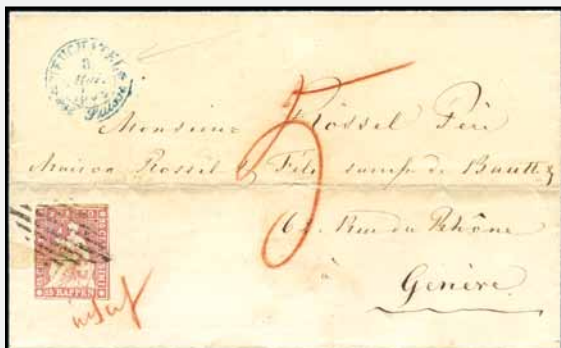 NEUCHATEL
3
Mai
Suisse
5
Monsieur Rössel Père
Maison Rossel & Fils
62 Rue du Rhône
à
Genève
15 RAPPEN